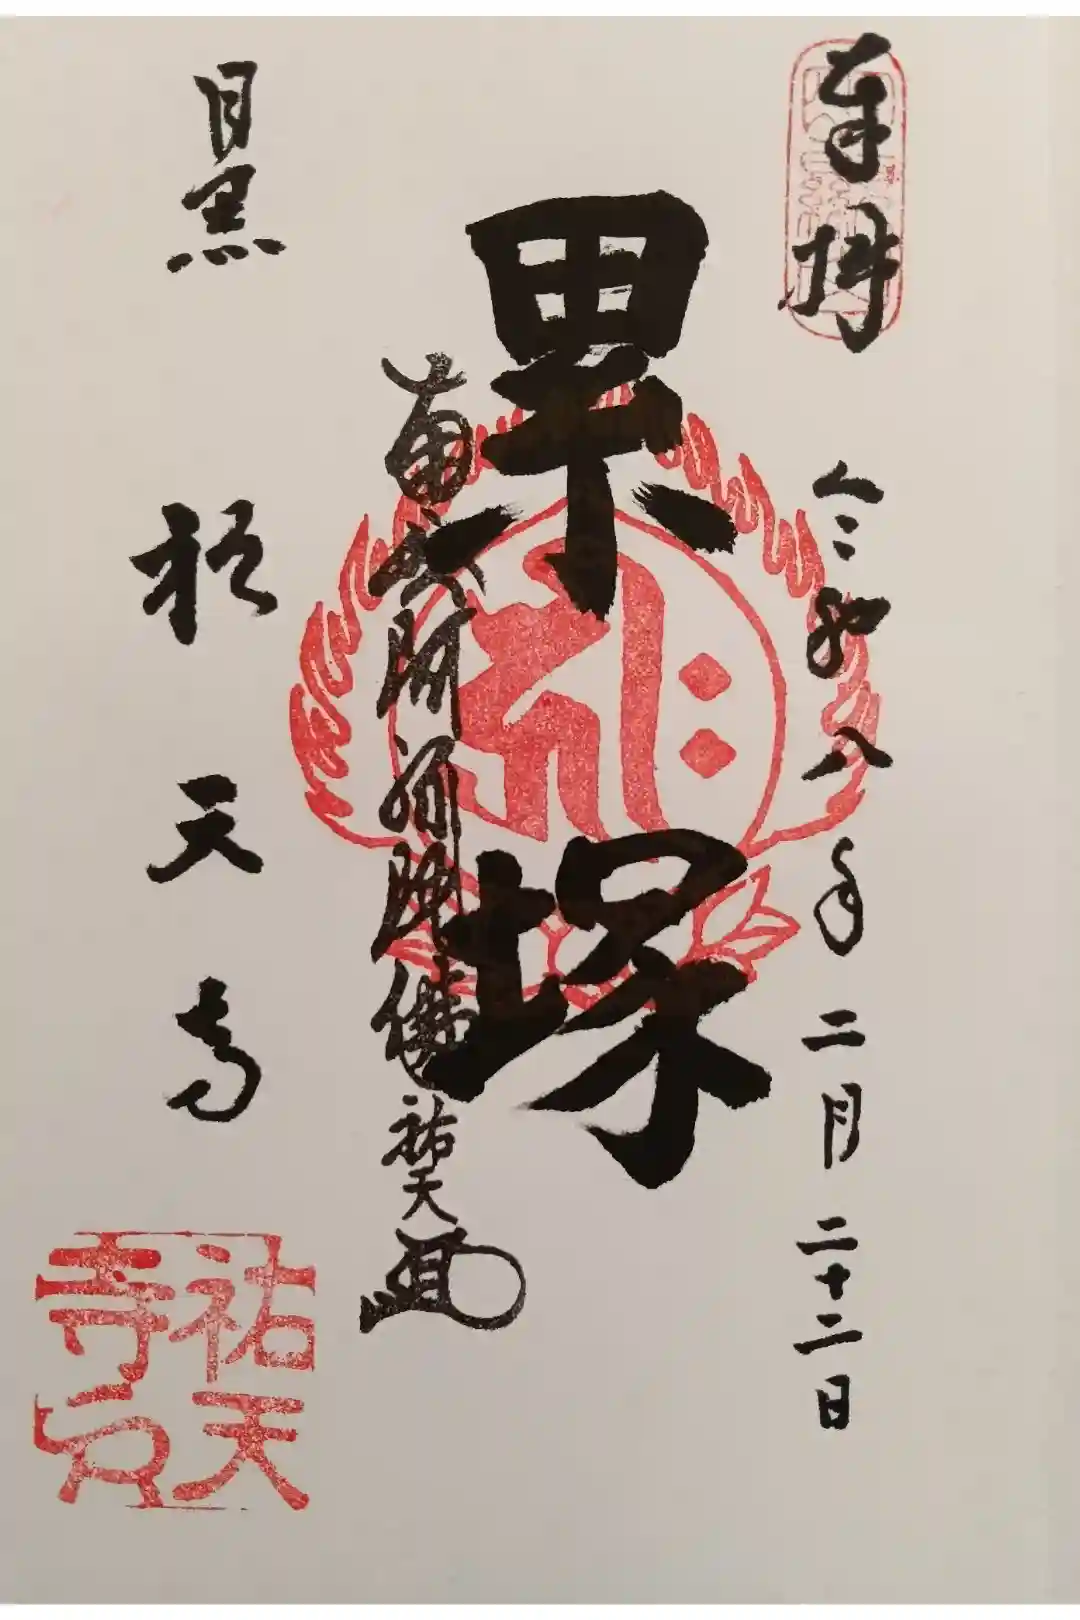 奉拝
令和八年二月二十二日
累
塚
南無阿弥陀佛
祐天
目黒
祐天寺
祐天
寺印